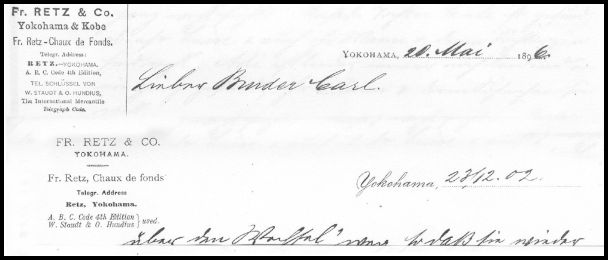 Fr. RETZ & Co.
Yokohama & Kobe
Fr. Retz-Chaux de Fonds.
Telegr. Address:
RETZ.—YOKOHAMA.
A. B. C. Code 4th Edition,
TEL. SCHLÜSSEL VON
W. STAUDT & O. HUNDIUS,
The International Mercantile
Telegraph Code.
YOKOHAMA, 20. Mai 1896.
Lieber Bruder Carl.
FR. RETZ & CO.
YOKOHAMA.
Fr. Retz, Chaux de fonds
Telegr. Address
Retz, Yokohama.
A. B. C. Code 4th Edition
W. Staudt & O. Hundius } used.
Yokohama, 23/12. 02
über den "Wechsel" war so daß sie wieder